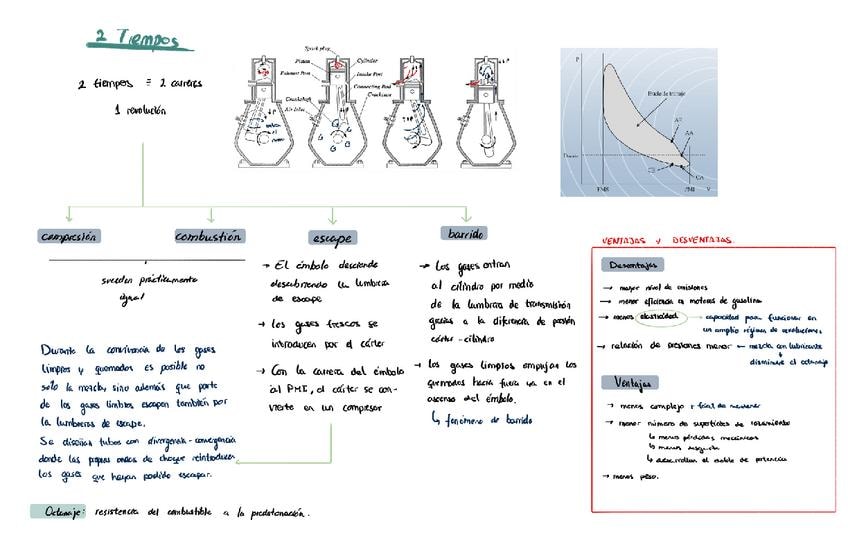 2 Tiempos
2 tiempos = 2 carreras
1 revolución
Spark plug
Piston
Exhaust Port
Crankshaft
Air Inlet
Cylinder
Intake Port
Connecting Rod
Crankcase
P
Bucle de trabajo
AE
AA
CE
CA
PMS
PMI
V
compresión
combustión
suceden prácticamente
igual
escape
→ El émbolo desciende
descubriendo la lumbrera
de escape
→ los gases frescos se
introducen por el cárter
→ Con la carrera del émbolo
al PMI, el cárter se con-
vierte en un compresor
barrido
→ Los gases entran
al cilindro por medio
de la lumbrera de transmisión
gracias a la diferencia de presión
cárter - cilindro
→ los gases limpios empujan los
quemados hacia fuera ya en el
ascenso del émbolo.
↳ fenómeno de barrido
Durante la convivencia de los gases
limpios y quemados es posible no
solo la mezcla, sino además que parte
de los gases limbios escapen también por
la lumbreras de escape.
Se diseñan tubos con divergencia - convergencia
donde las propias ondas de choque reintroducen
los gases que hayan podido escapar.
Octanaje: resistencia del combustible a la predetonación.
VENTAJAS Y DESVENTAJAS.
Desventajas
→ mayor nivel de emisiones
→ menor eficiencia en motores de gasolina
→ menos elasticidad → capacidad para funcionar en
un amplio régimen de revoluciones
→ relación de presiones menor ← mezcla con lubricante
disminuye el octanaje
Ventajas
→ menos complejo y fácil de mantener
→ menor número de superficies de rozamiento
↳ menos pérdidas mecánicas
↳ menos desgaste
→ menos peso.